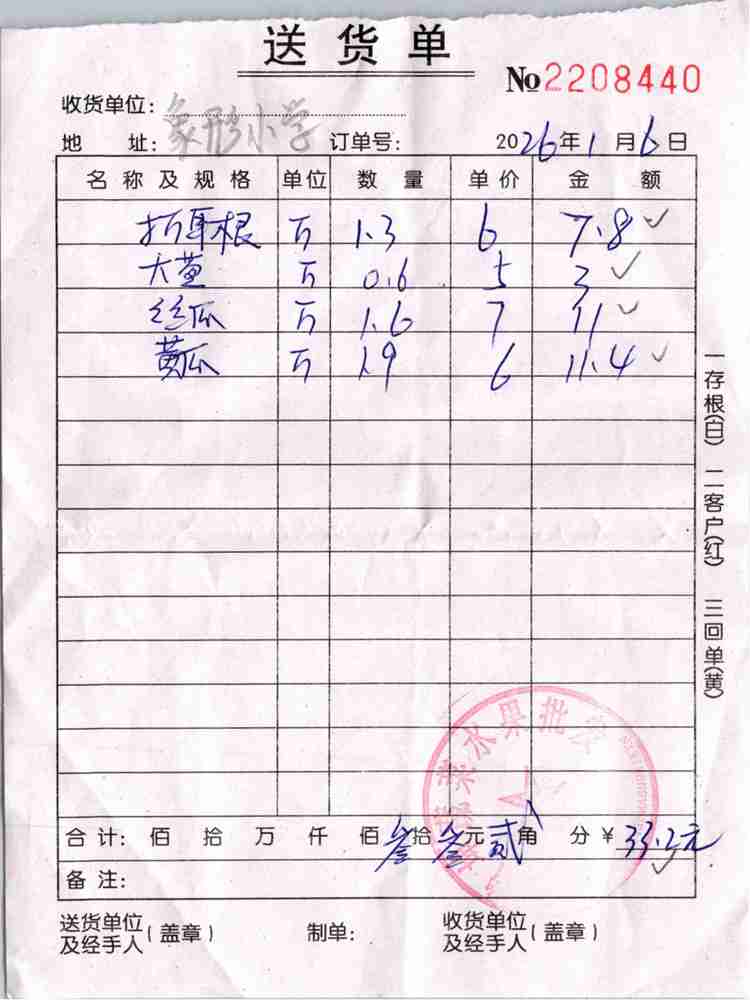 送货单
№2208440
收货单位:
地 址: 象形小学 订单号: 2026年1月6日
名称及规格 单位 数量 单价 金额
折耳根 斤 1.3 6 7.8 ✓
大葱 斤 0.6 5 3 ✓
丝瓜 斤 1.6 7 11 ✓
黄瓜 斤 1.9 6 11.4 ✓
合计: 佰 拾 万 仟 佰 叁拾叁元贰角 分 ¥33.2元 ✓
备注:
送货单位及经手人(盖章) 制单: 收货单位及经手人(盖章)
一存根(白) 二客户(红) 三回单(黄)
菜水果批发